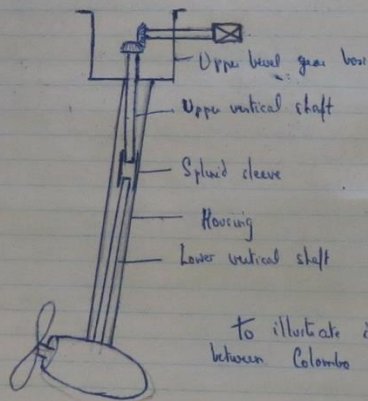 Upper bevel gear box
Upper vertical shaft
Splined sleeve
Housing
Lower vertical shaft
to illustrate
between Colombo